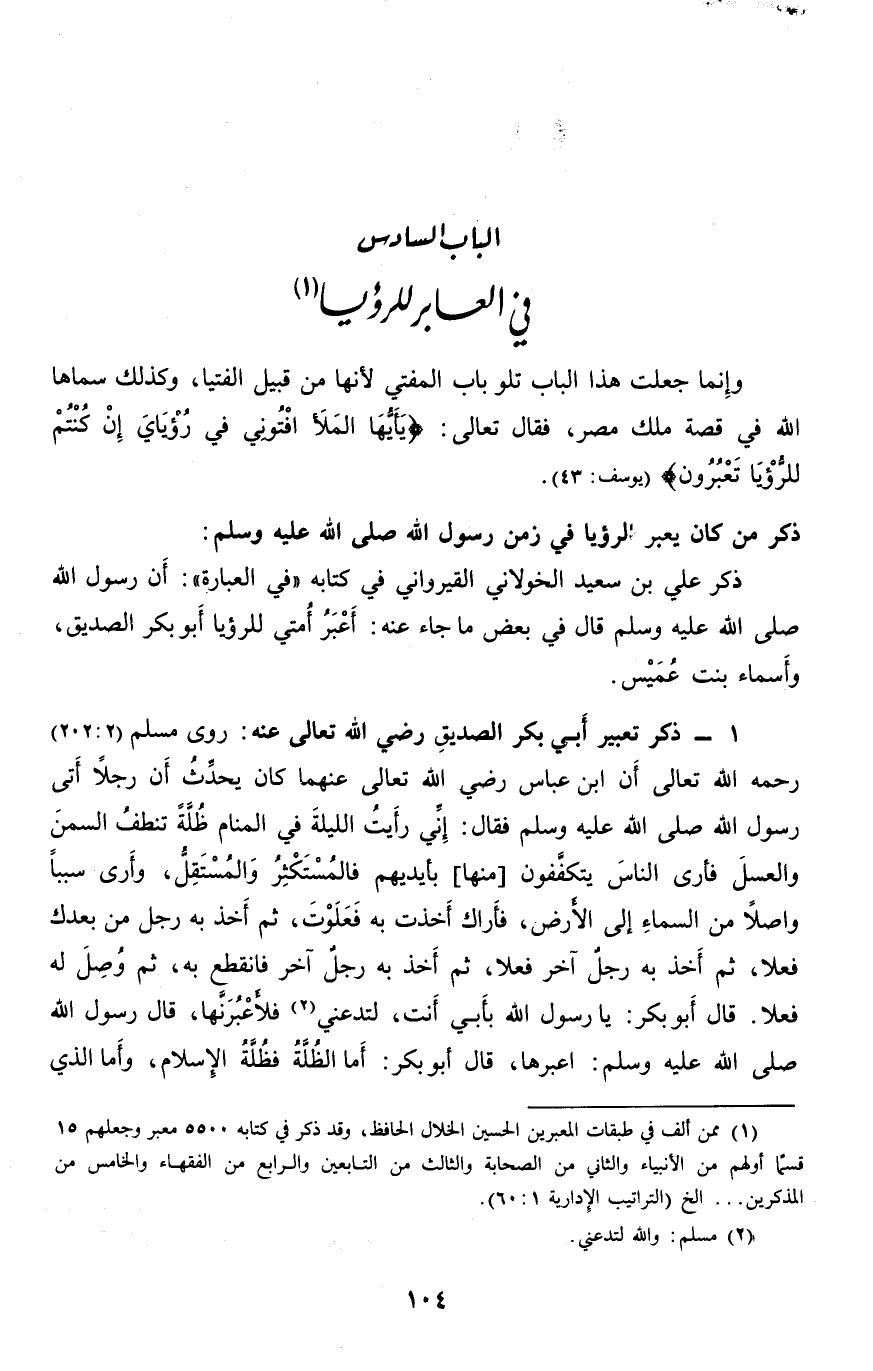 الباب السادس
في العابر للرؤيا(١)
وإنما جعلت هذا الباب تلو باب المفتي لأنها من قبيل الفتيا، وكذلك سماها
الله في قصة ملك مصر، فقال تعالى: ﴿يَأَيُّهَا المَلَأ افْتُونِي في رُؤْيَايَ إِنْ كُنْتُمْ
للرُّؤْيَا تَعْبُرُون﴾ (يوسف: ٤٣).
ذكر من كان يعبر الرؤيا في زمن رسول الله صلى الله عليه وسلم:
ذكر علي بن سعيد الخولاني القيرواني في كتابه «في العبارة»: أَن رسول الله
صلى الله عليه وسلم قال في بعض ما جاء عنه: أَعْبَرُ أُمتي للرؤيا أَبو بكر الصديق،
وأَسماء بنت عُمَيْس.
١ ــ ذكر تعبير أَبـي بكر الصديقِ رضي الله تعالى عنه: روى مسلم (٢٠٢:٢)
رحمه الله تعالى أَن ابن عباس رضي الله تعالى عنهما كان يحدِّثُ أَن رجلاً أَتى
رسول الله صلى الله عليه وسلم فقال: إِنِّي رأَيتُ الليلةَ في المنام ظُلَّةً تنطفُ السمنَ
والعسلَ فأرى الناسَ يتكفَّفون [منها] بأيديهم فالمُسْتَكْثِرُ وَالمُسْتَقِلُّ، وأَرى سبباً
واصلاً من السماءِ إلى الأَرض، فأَراك أَخذت به فَعَلَوْتَ، ثم أَخذ به رجل من بعدك
فعلا، ثم أَخذ به رجلٌ آخر فعلا، ثم أَخذ به رجلٌ آخر فانقطع به، ثم وُصِلَ له
فعلا. قال أَبو بكر: يا رسول الله بأَبـي أَنت، لتدعني(٢) فلأَعْبُرَنَّها، قال رسول الله
صلى الله عليه وسلم: اعبرها، قال أبو بكر: أَما الظُّلَّةُ فظُلَّةُ الإِسلام، وأَما الذي
(١) ممن ألف في طبقات المعبرين الحسين الخلال الحافظ، وقد ذكر في كتابه ٥٥٠٠ معبر وجعلهم ١٥
قسمًا أولهم من الأنبياء والثاني من الصحابة والثالث من التابعين والرابع من الفقهاء والخامس من
المذكرين... الخ (التراتيب الإدارية ١: ٦٠).
(٢) مسلم: والله لتدعني.
١٠٤